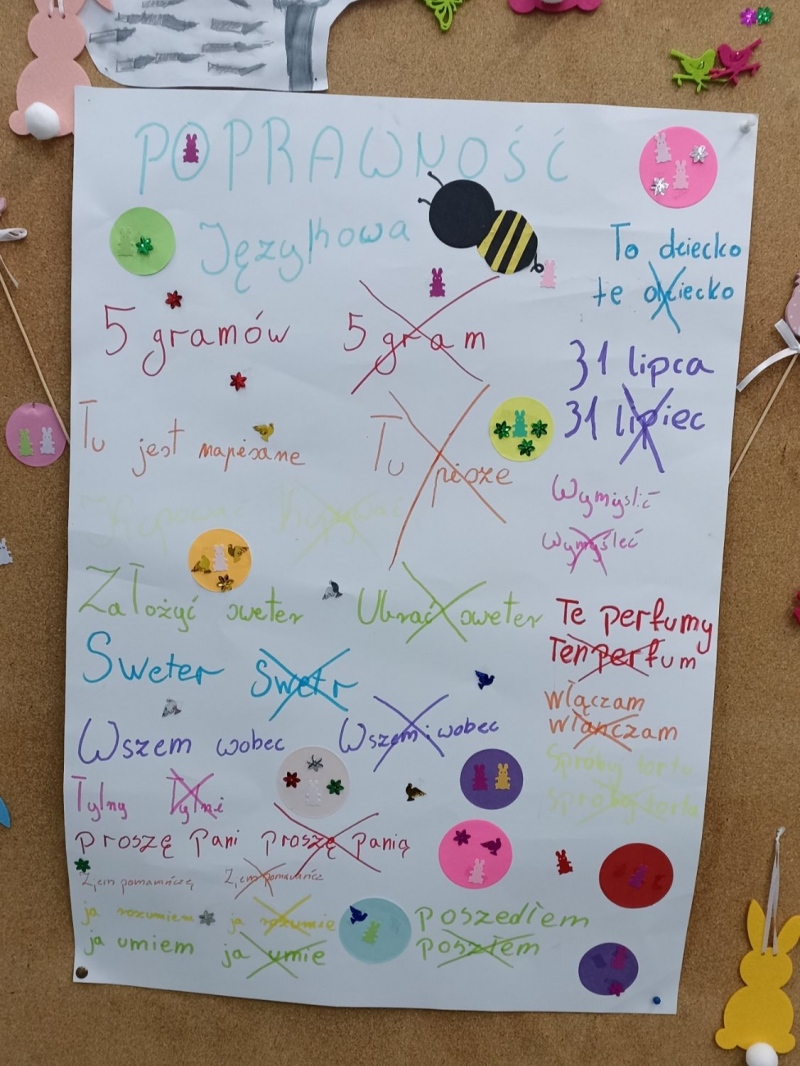 POPRAWNOŚĆ
Językowa
To dziecko
te dziecko
5 gramów 5 gram
31 lipca
31 lipiec
Tu jest napisane Tu pisze
Wymyślić
Wymyśleć
Założyć sweter Ubrać sweter
Te perfumy
Ten perfum
Sweter Swetr
włączam
wlanczam
Wszem wobec Wszem i wobec
Spróbuj tortu
tortu
Tylny Tylni
proszę Pani proszę panią
Zjem pomarańczę Zjem
ja rozumiem ja rozumie
ja umiem ja umie
poszedłem
poszłem